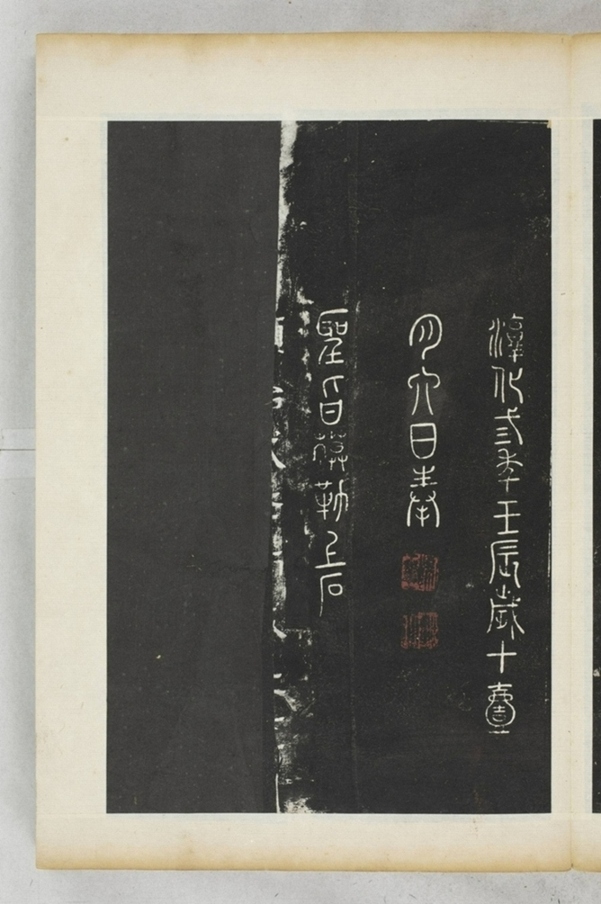 淳化三年壬辰歲十壹
月六日奉
聖旨摹勒上石